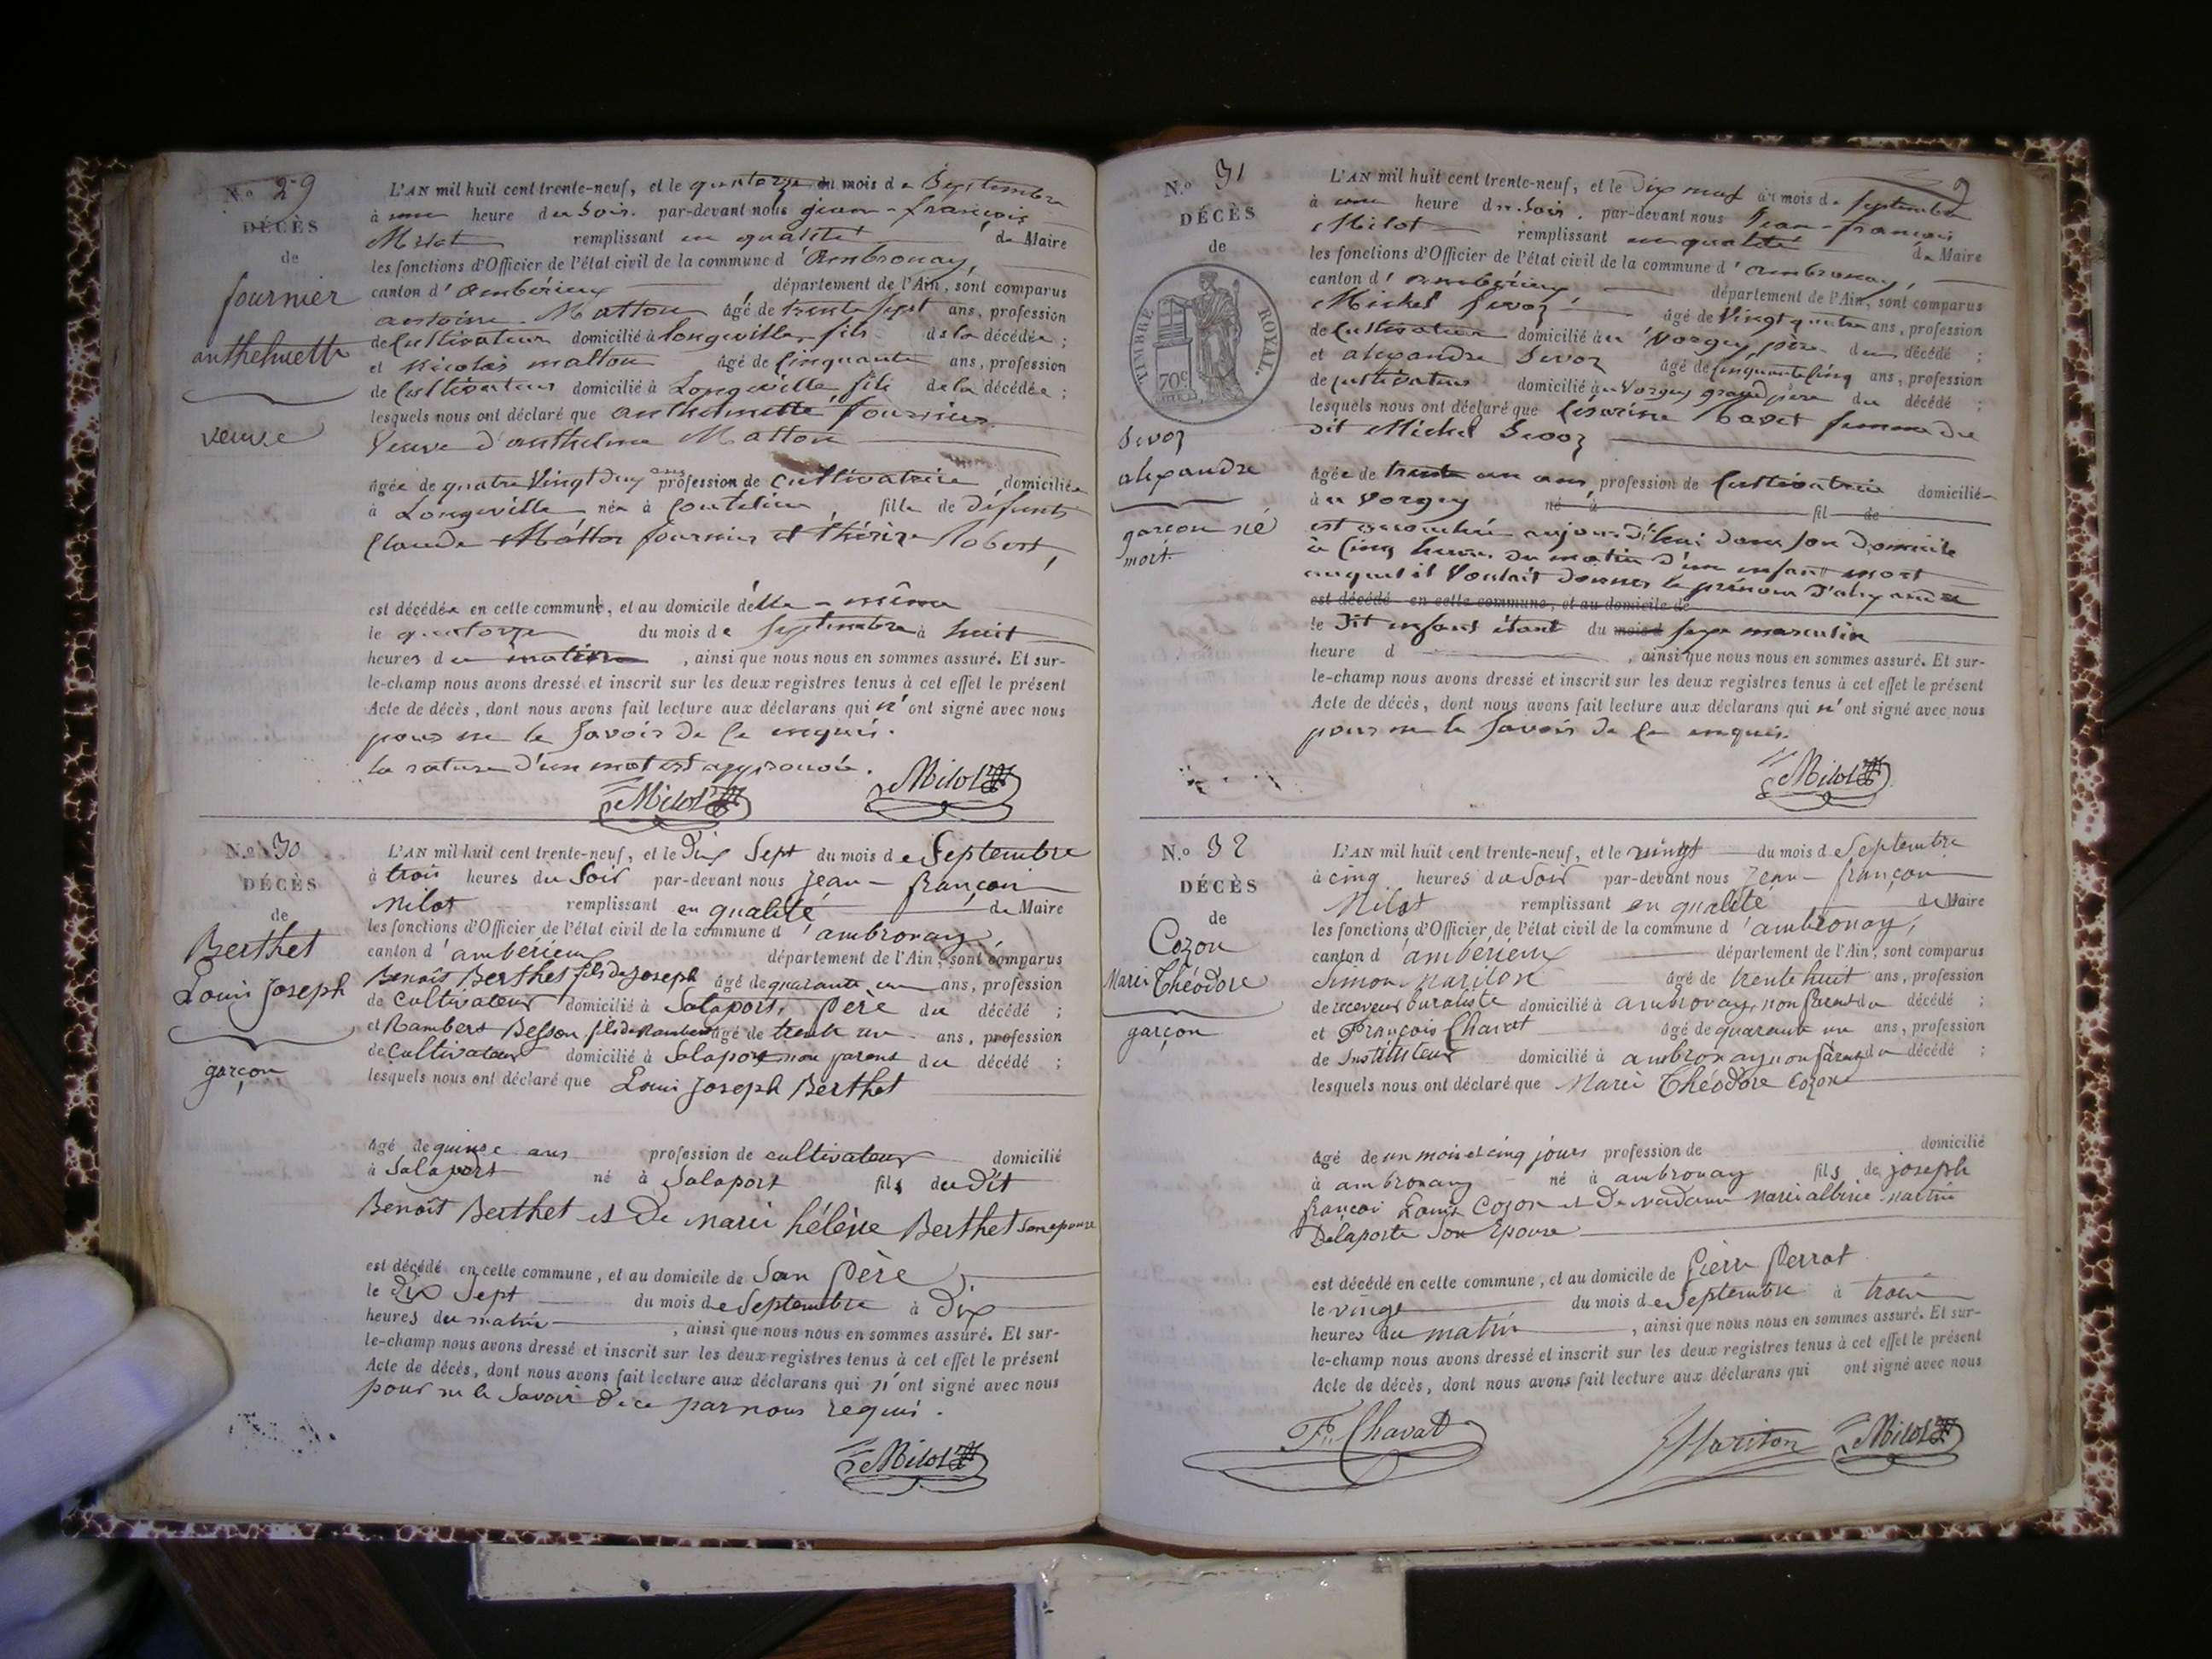 N.o 29
DÉCÈS
de
fournier
anthelmette
veuve
L'AN mil huit cent trente-neuf, et le quatorze du mois de Septembre
à une heure du Soir. par-devant nous jean-françois
Milot remplissant en qualité de Maire
les fonctions d'Officier de l'état civil de la commune d'Ambronay,
canton d'Ambérieux, département de l'Ain, sont comparus
antoine Matton âgé de trente sept ans, profession
de Cultivateur domicilié à longeville, fils de la décédée ;
et Nicolas matton âgé de Cinquante ans, profession
de Cultivateur domicilié à Longeville, fils de la décédée ;
lesquels nous ont déclaré que anthelmette fournier
Veuve d'anthelme Matton
âgée de quatre Vingt deux ans profession de Cultivatrice domiciliée
à Longeville née à , fille de défunts
Claude Matton fournier et thérèze Robert,
est décédée en cette commune, et au domicile d'elle-même
le quatorze du mois de Septembre à huit
heures du matin, ainsi que nous nous en sommes assuré. Et sur-
le-champ nous avons dressé et inscrit sur les deux registres tenus à cet effet le présent
Acte de décès, dont nous avons fait lecture aux déclarans qui n'ont signé avec nous
pour ne le Savoir de ce enquis.
la rature d'un mot est approuvée.
Milot Milot
N.o 30
DÉCÈS
de
Berthet
Louis Joseph
garçon
L'AN mil huit cent trente-neuf, et le Dix Sept du mois de Septembre
à trois heures du Soir par-devant nous Jean-françois
Milot remplissant en qualité de Maire
les fonctions d'Officier de l'état civil de la commune d'ambronay,
canton d'ambérieux département de l'Ain, sont comparus
Benoît Berthet fils de Joseph âgé de quarante un ans, profession
de Cultivateur domicilié à Salaport, Père du décédé ;
et Rambert Besson fils de Rambert âgé de trente un ans, profession
de Cultivateur domicilié à Salaport non parent du décédé ;
lesquels nous ont déclaré que Louis Joseph Berthet
âgé de quinze ans profession de cultivateur domicilié
à Salaport né à Salaport fils du dit
Benoît Berthet et De Marie hélène Berthet son epouse
est décédé en cette commune, et au domicile de Son Père,
le Dix Sept du mois de Septembre à Dix
heures du matin, ainsi que nous nous en sommes assuré. Et sur-
le-champ nous avons dressé et inscrit sur les deux registres tenus à cet effet le présent
Acte de décès, dont nous avons fait lecture aux déclarans qui n'ont signé avec nous
pour ne le Savoir de ce par nous requis.
Milot
9
N.o 31
DÉCÈS
de
TIMBRE ROYAL.
70c
Sevoz
alexandre
garçon né
mort.
L'AN mil huit cent trente-neuf, et le Dix neuf du mois de Septembre
à une heure du Soir. par-devant nous Jean-françois
Milot remplissant en qualité de Maire
les fonctions d'Officier de l'état civil de la commune d'ambronay,
canton d'ambérieux département de l'Ain, sont comparus
Michel Sevoz âgé de Vingt quatre ans, profession
de Cultivateur domicilié au Vorgey, père du décédé ;
et alexandre Sevoz âgé de Cinquante Cinq ans, profession
de Cultivateur domicilié au Vorgey grand père du décédé ;
lesquels nous ont déclaré que Césarine Bavet femme du
dit Michel Sevoz
âgée de trente un ans, profession de Cultivatrice domiciliée
au Vorgey né à fil de
est accouchée aujourd'hui dans son Domicile
à Cinq heures du matin d'un enfant mort
auquel il Voulait donner le prénom d'alexandre
est décédé en cette commune, et au domicile de
le Dit enfant étant du mois d Sexe masculin
heure d , ainsi que nous nous en sommes assuré. Et sur-
le-champ nous avons dressé et inscrit sur les deux registres tenus à cet effet le présent
Acte de décès, dont nous avons fait lecture aux déclarans qui n'ont signé avec nous
pour ne le Savoir de ce enquis.
Milot
N.o 32
DÉCÈS
de
Cozon
Marie Théodore
garçon
L'AN mil huit cent trente-neuf, et le vingt du mois de Septembre
à cinq heures du Soir par-devant nous Jean-françois
Milot remplissant en qualité de Maire
les fonctions d'Officier de l'état civil de la commune d'ambronay,
canton d'ambérieux département de l'Ain, sont comparus
Simon Mariton âgé de trente huit ans, profession
de receveur buraliste domicilié à ambronay, non parent du décédé ;
et François Chavat âgé de quarante un ans, profession
de Instituteur domicilié à ambronay non parent du décédé ;
lesquels nous ont déclaré que Marie Théodore Cozon
âgé de un mois et cinq jours profession de domicilié
à ambronay né à ambronay fils de joseph
françois Louis Cozon et De Madame Marie albine Martin
Delaporte Son Epouse
est décédé en cette commune, et au domicile de Pierre Perrat
le vingt du mois de Septembre à trois
heures du matin, ainsi que nous nous en sommes assuré. Et sur-
le-champ nous avons dressé et inscrit sur les deux registres tenus à cet effet le présent
Acte de décès, dont nous avons fait lecture aux déclarans qui ont signé avec nous
F. Chavat Mariton Milot